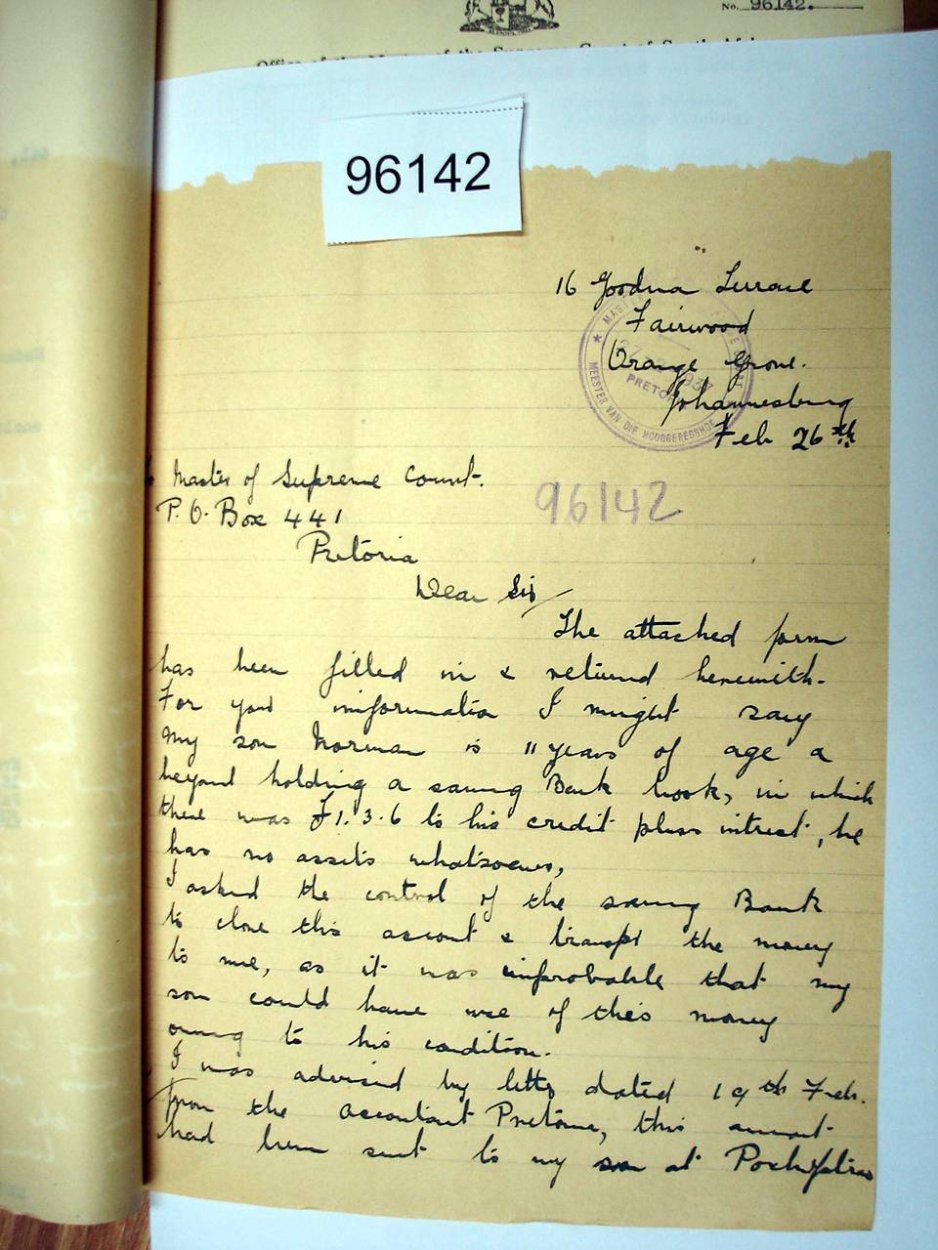 No. 96142.
Office of the Master of the Supreme Court of South Africa
96142
16 Goodma Terrace
Fairwood
Orange Grove.
Johannesburg
Feb 26th
MEESTER VAN DIE HOOGGEREGSHOF
PRETORIA
Master of Supreme Court.
96142
P.O. Box 441
Pretoria
Dear Sir
The attached form
has been filled in & returned herewith.
For your information I might say
my son Norman is 11 years of age &
beyond holding a saving Bank book, in which
there was £1.3.6 to his credit pluss intrest, he
has no assets whatsoever,
I asked the control of the saving Bank
to close this account & transfer the money
to me, as it was improbable that my
son could have use of this money
owing to his condition.
I was advised by letter dated 19th Feb.
from the accountant Pretoria, this amount
had been sent to my son at